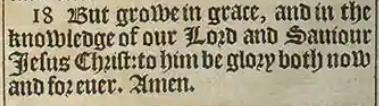 18 But growe in grace, and in the
knowledge of our Lord and Sauiour
Jesus Christ: to him be glory both now
and for euer. Amen.